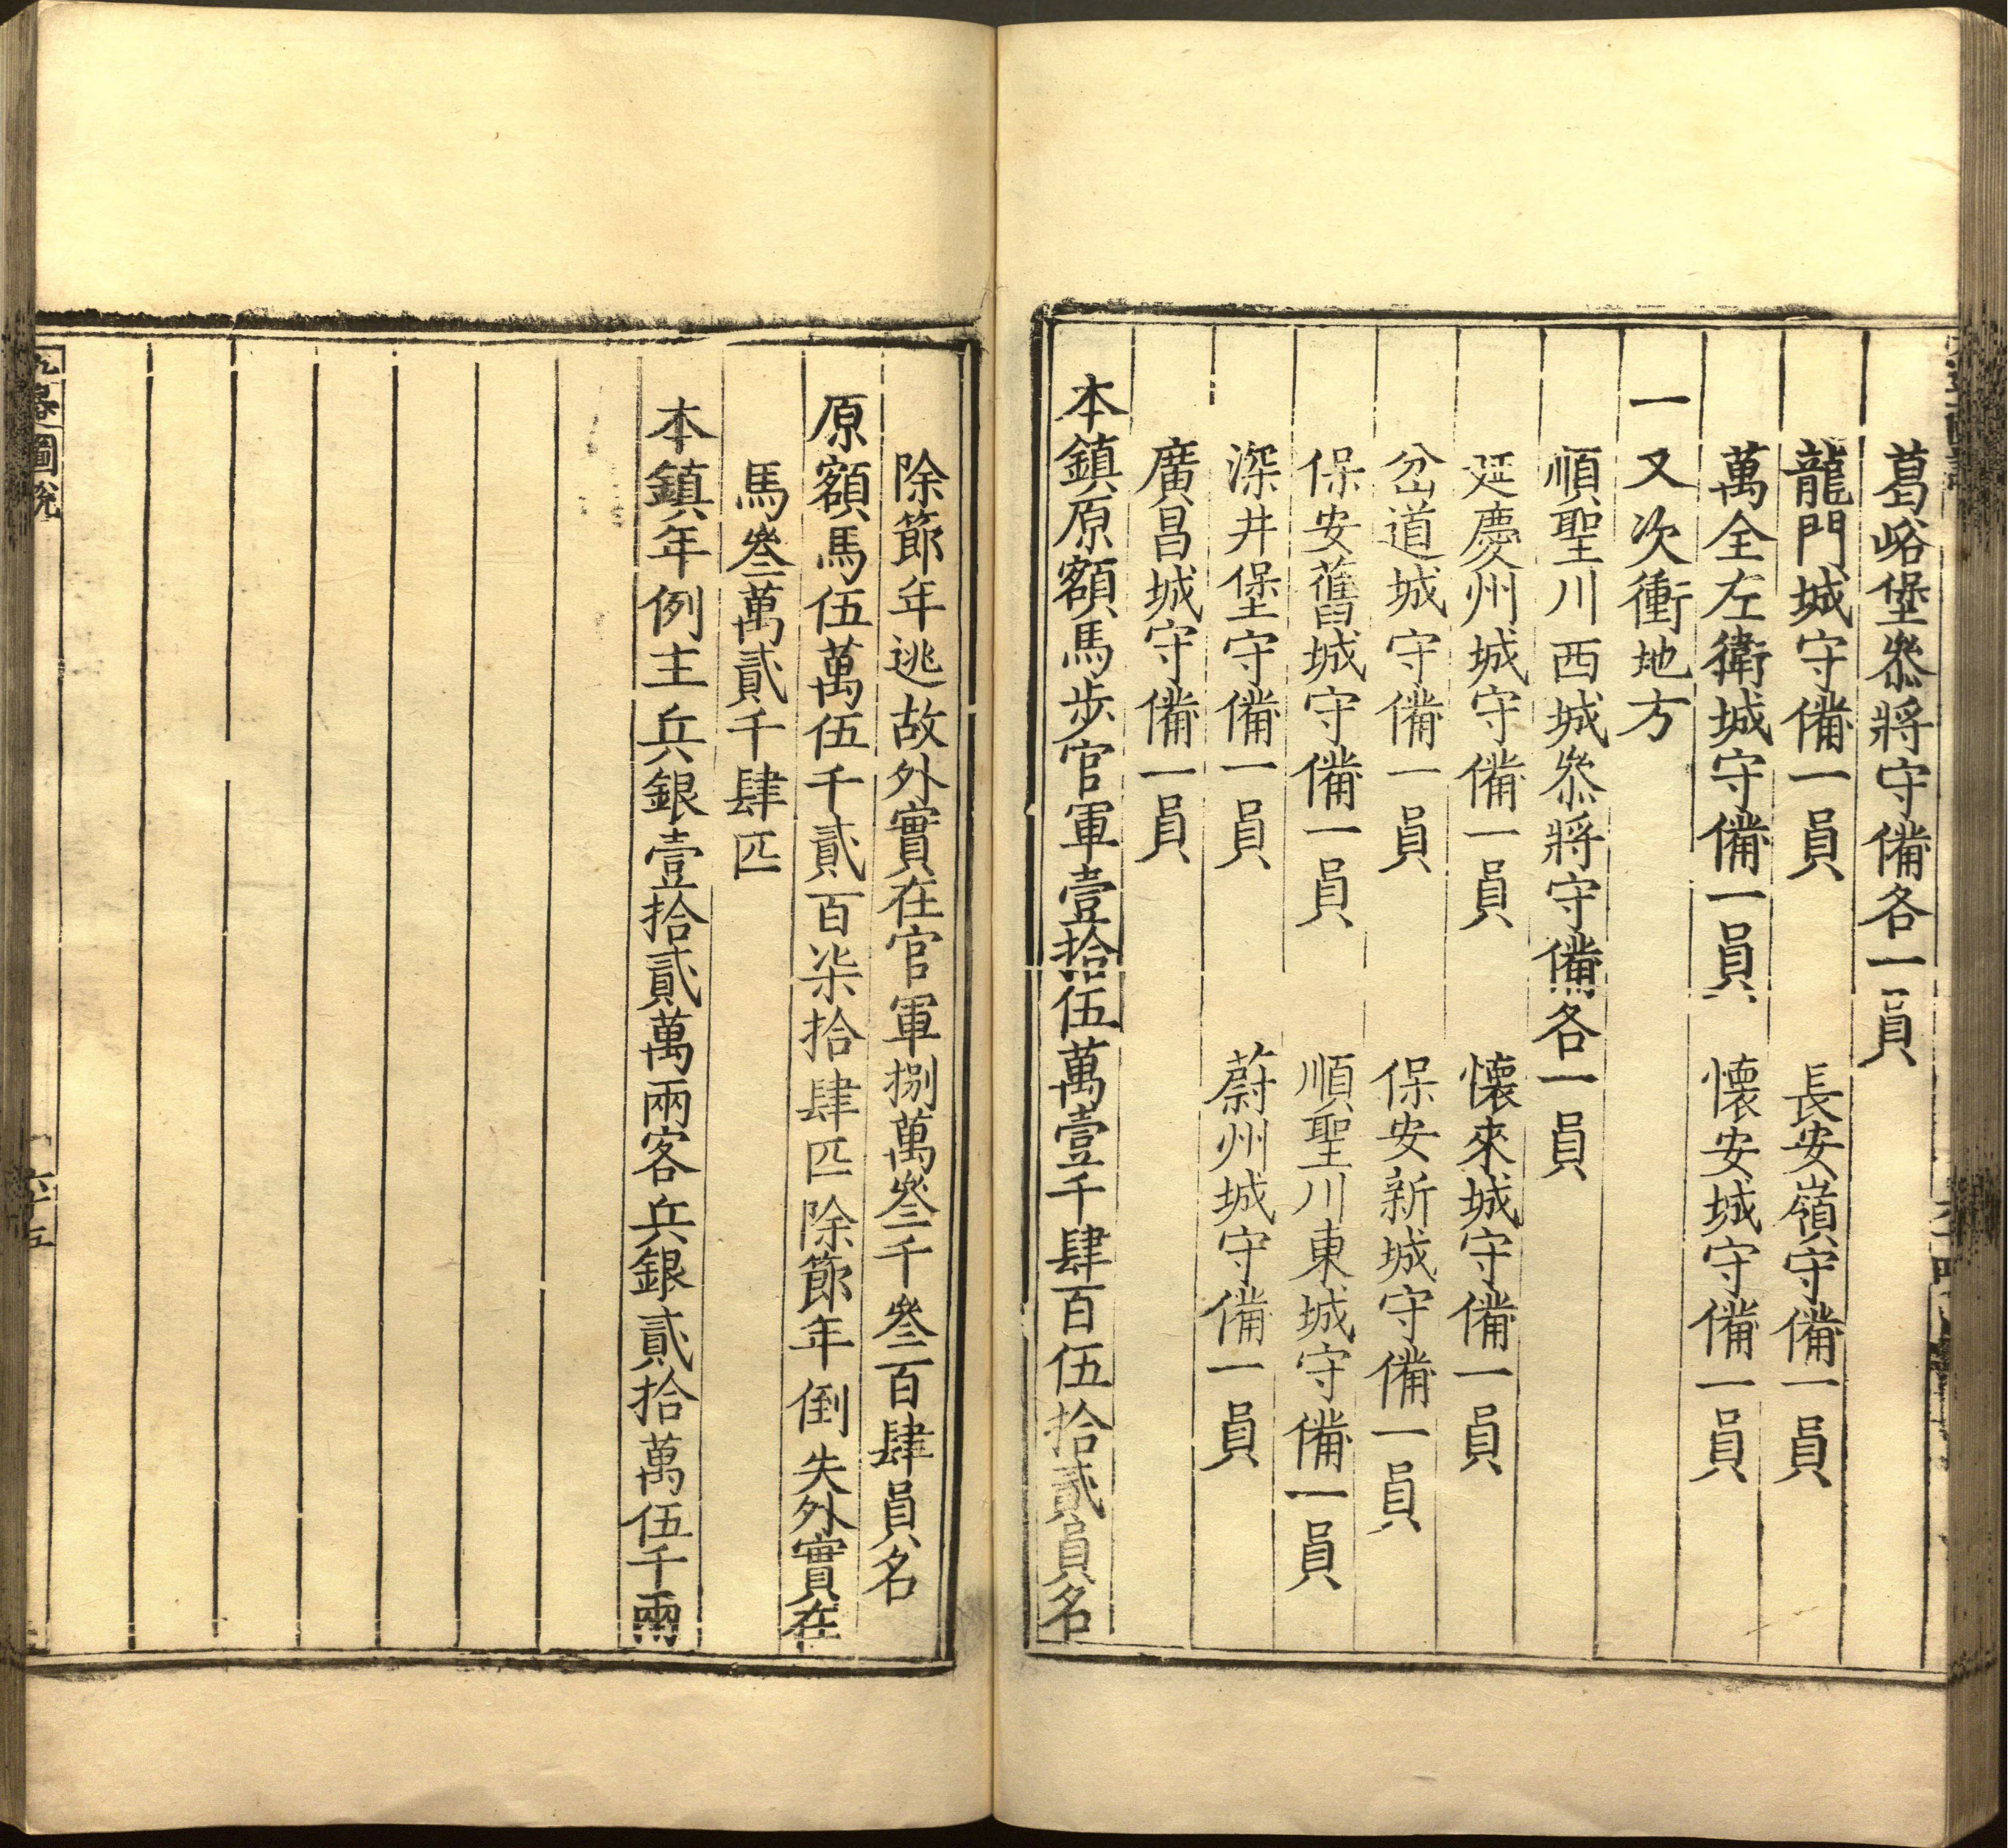 葛峪堡叅將守備各一員
龍門城守備一員　長安嶺守備一員
萬全左衛城守備一員　懷安城守備一員
一又次衝地方
順聖川西城叅將守備各一員
延慶州城守備一員　懷來城守備一員
岔道城守備一員　保安新城守備一員
保安舊城守備一員　順聖川東城守備一員
深井堡守備一員　蔚州城守備一員
廣昌城守備一員
本鎮原額馬步官軍壹拾伍萬壹千肆百伍拾貳員名
除節年逃故外實在官軍捌萬叄千叄百肆員名
原額馬伍萬伍千貳百柒拾肆匹除節年倒失外實在
馬叄萬貳千肆匹
本鎮年例主兵銀壹拾貳萬兩客兵銀貳拾萬伍千兩
圖說